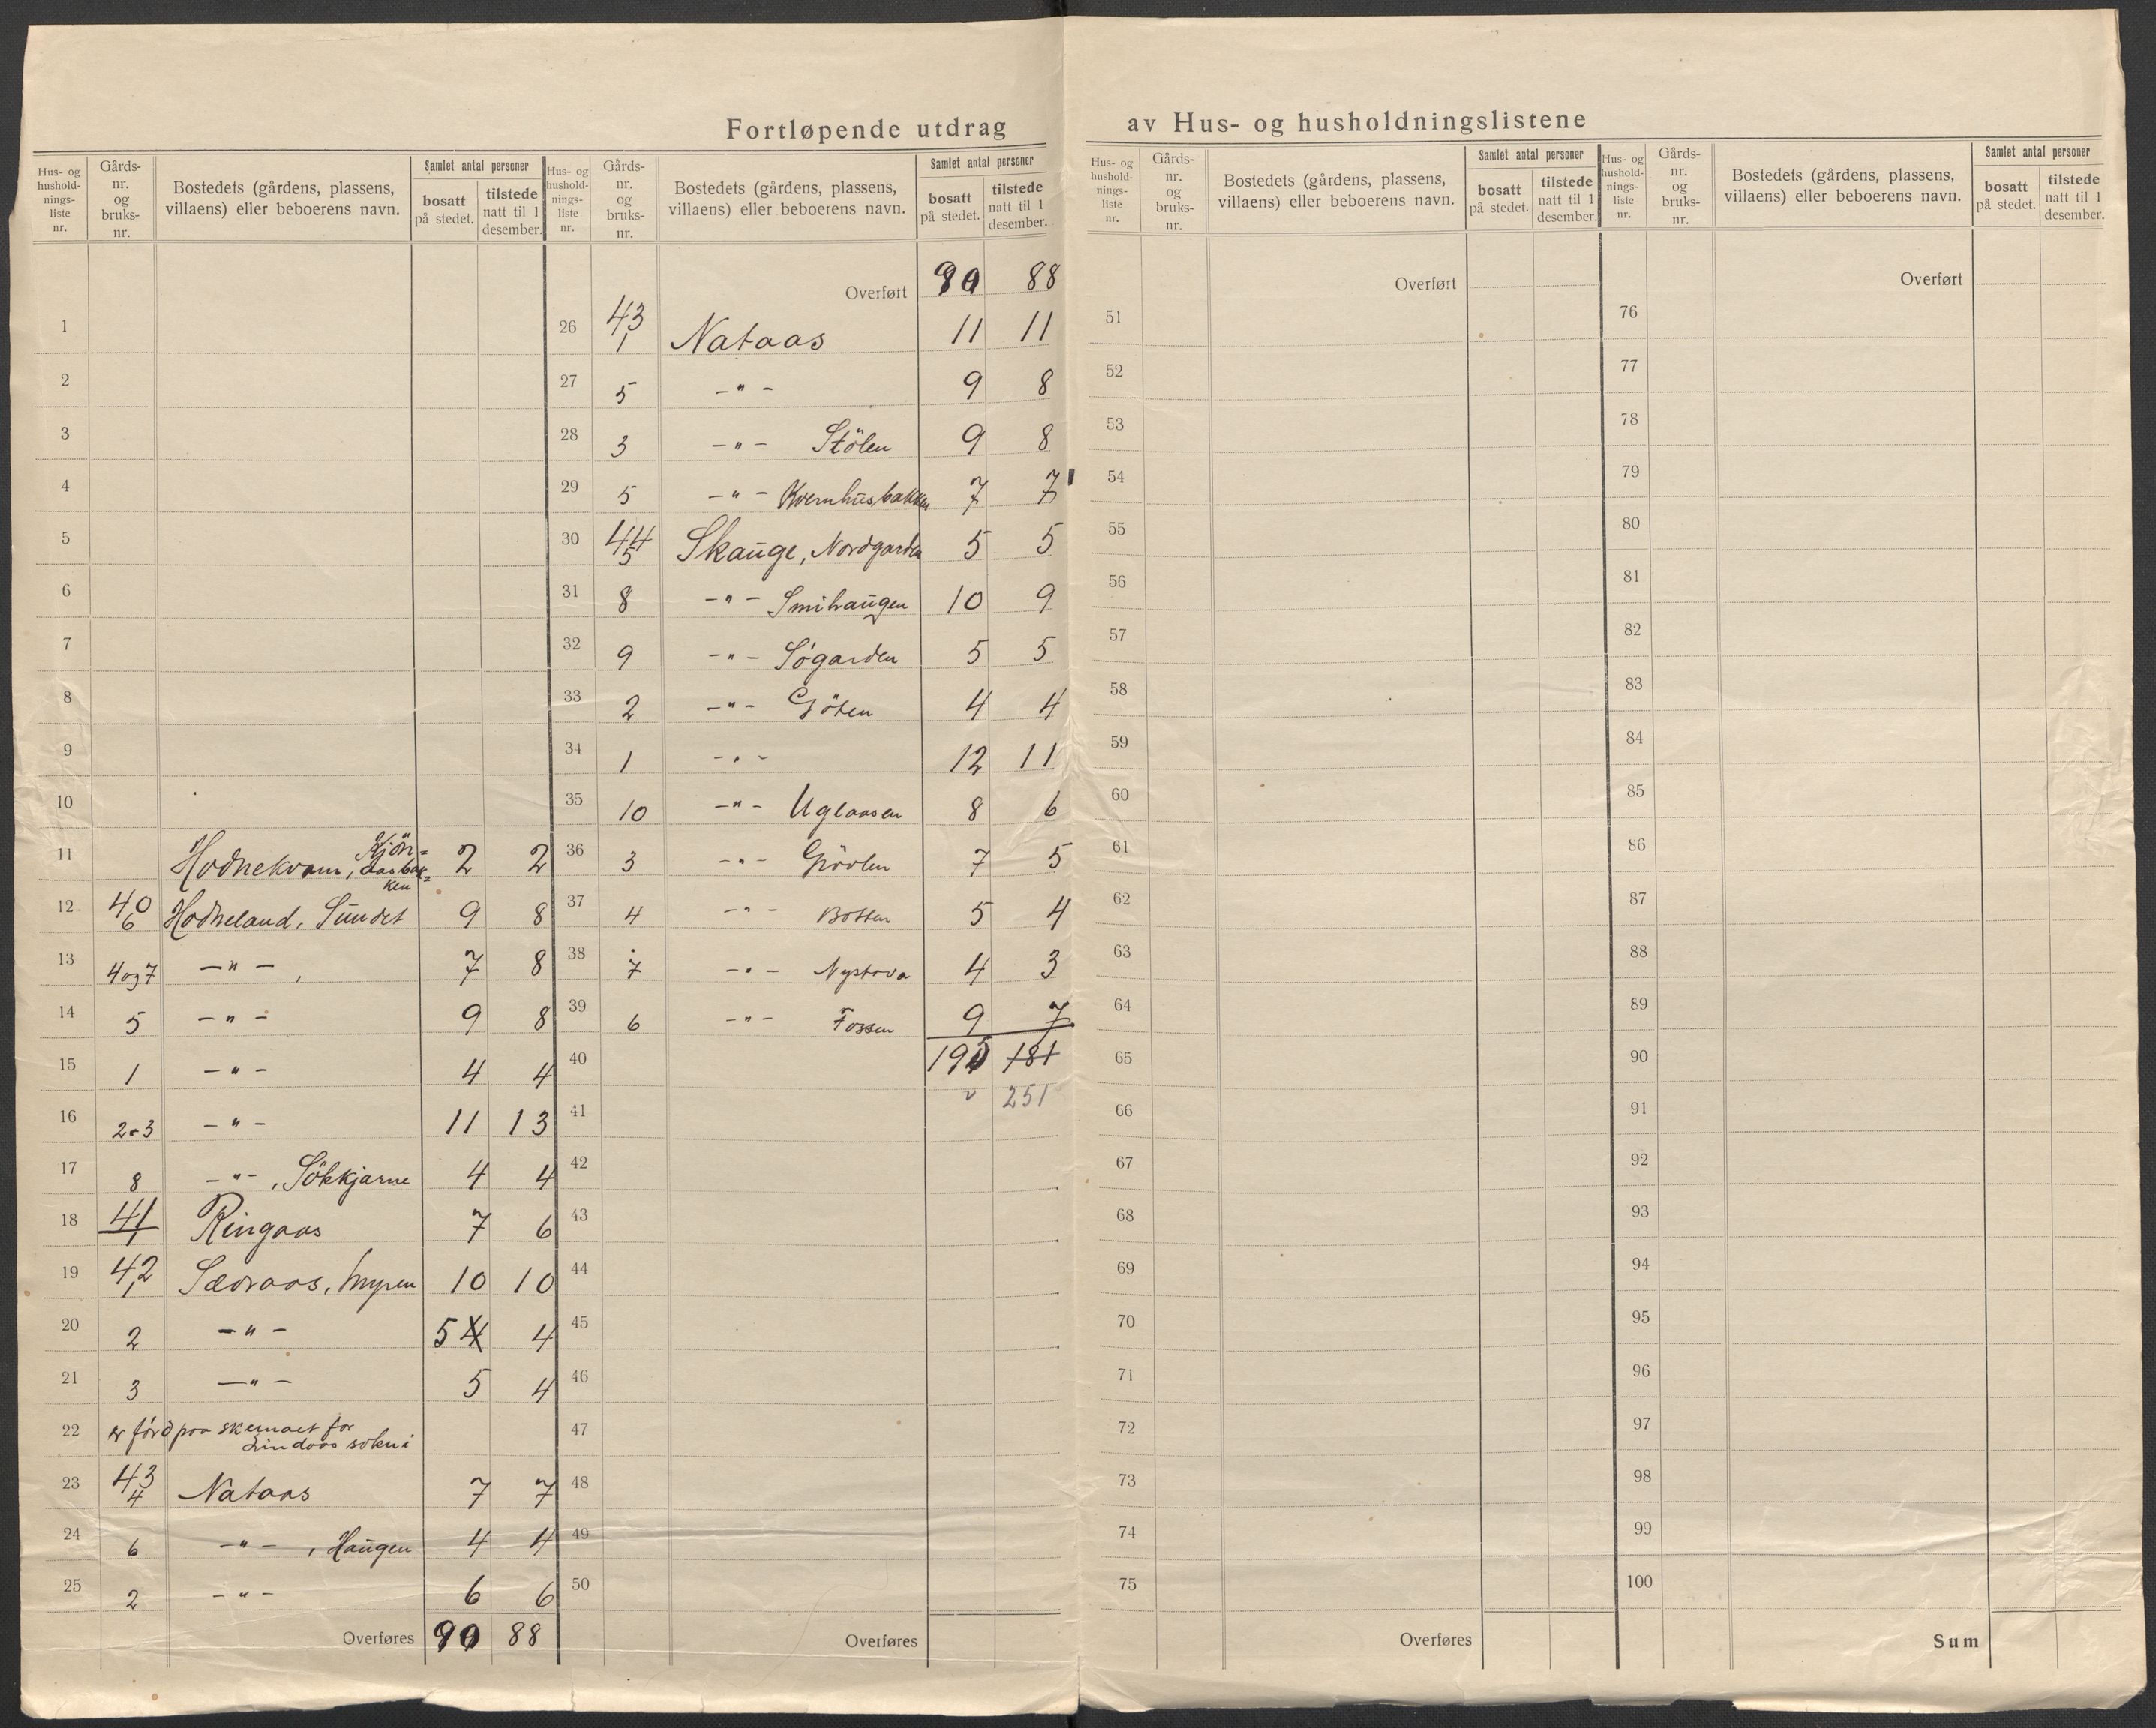 Fortløpende utdrag av Hus- og husholdningslistene
Hus- og hushold-nings-liste nr.
Gårds-nr. og bruks-nr.
Bostedets (gårdens, plassens, villaens) eller beboerens navn.
Samlet antal personer
bosatt på stedet.
tilstede natt til 1 desember.
Hus- og hushold-nings-liste nr.
Gårds-nr. og bruks-nr.
Bostedets (gårdens, plassens, villaens) eller beboerens navn.
Samlet antal personer
bosatt på stedet.
tilstede natt til 1 desember.
Hus- og hushold-nings-liste nr.
Gårds-nr. og bruks-nr.
Bostedets (gårdens, plassens, villaens) eller beboerens navn.
Samlet antal personer
bosatt på stedet.
tilstede natt til 1 desember.
Hus- og hushold-nings-liste nr.
Gårds-nr. og bruks-nr.
Bostedets (gårdens, plassens, villaens) eller beboerens navn.
Samlet antal personer
bosatt på stedet.
tilstede natt til 1 desember.
1
2
3
4
5
6
7
8
9
10
11 Hodnekvam, 2 2
12 40 6 Hodneland, Sundet 9 8
13 4 og 7 -"- , 7 8
14 5 -"- 9 8
15 1 -"- 4 4
16 2-3 -"- 11 13
17 8 -"- , Sökkjarne 4 4
18 41 1 Ringaas 7 6
19 42 1 Sævraas, Myren 10 10
20 2 -"- 5 4 4
21 3 -"- 5 4
22 er förd paa skemaet for
Lindaas sokn i
23 43 4 Nataas 7 7
24 6 -"- , Haugen 4 4
25 2 -"- 6 6
Overføres 88
Overført 88
26 43 1 Nataas 11 11
27 5 -"- 9 8
28 3 -"- Stölen 9 8
29 5 -"- Kvernhusbakken 7 7
30 44 5 Skauge, Nordgarden 5 5
31 8 -"- Smihaugen 10 9
32 9 -"- Søgarden 5 5
33 2 -"- Göten 4 4
34 1 -"- 12 11
35 10 -"- Uglaasen 8 6
36 3 -"- 7 5
37 4 -"- Botten 5 4
38 7 -"- Nystova 4 3
39 6 -"- Fossen 9 7
40 181
41 251
42
43
44
45
46
47
48
49
50
Overføres
Overført
51
52
53
54
55
56
57
58
59
60
61
62
63
64
65
66
67
68
69
70
71
72
73
74
75
Overføres
Overført
76
77
78
79
80
81
82
83
84
85
86
87
88
89
90
91
92
93
94
95
96
97
98
99
100
Sum